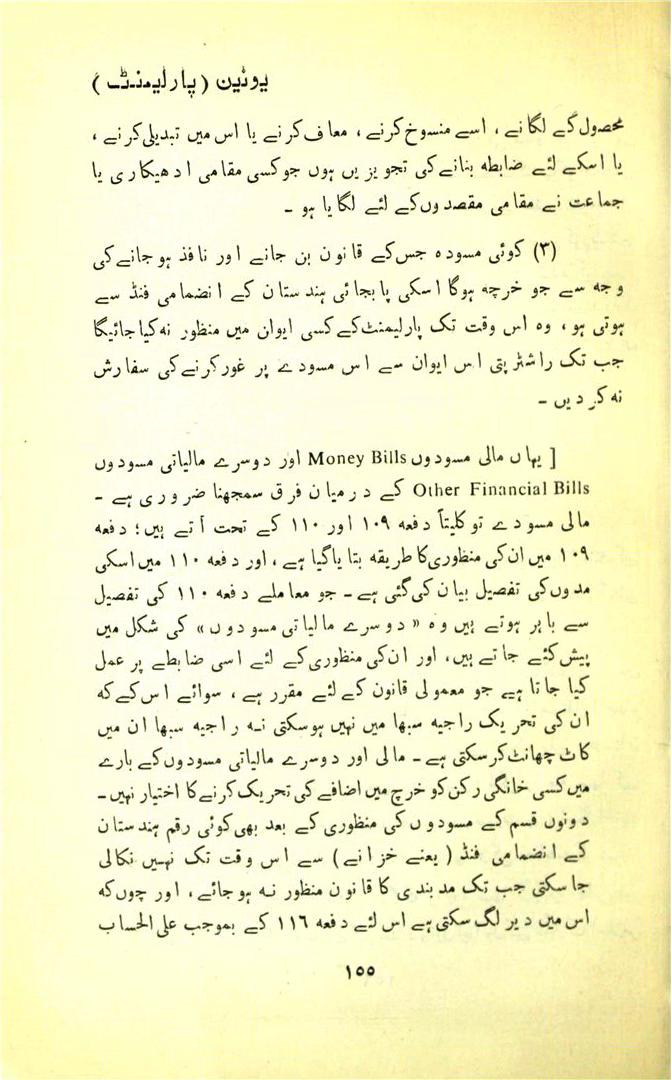 یونین (پارلیمنٹ)
محصول کے لگانے، اسے منسوخ کرنے، معاف کرنے یا اس میں تبدیلی کرنے،
یا اسکے لئے ضابطہ بنانے کی تجویزیں ہوں جو کسی مقامی ادھیکاری یا
جماعت نے مقامی مقصدوں کے لئے لگایا ہو ۔
(۳) کوئی مسودہ جس کے قانون بن جانے اور نافذ ہوجانے کی
وجہ سے جو خرچہ ہوگا اسکی پابجائی ہندستان کے انضمامی فنڈ سے
ہوتی ہو، وہ اس وقت تک پارلیمنٹ کے کسی ایوان میں منظور نہ کیا جائیگا
جب تک راشٹرپتی اس ایوان سے اس مسودے پر غور کرنے کی سفارش
نہ کر دیں ۔
[ یہاں مالی مسودوں Money Bills اور دوسرے مالیاتی مسودوں
Other Financial Bills کے درمیان فرق سمجھنا ضروری ہے ۔
مالی مسودے تو کلیتاً دفعہ ۱۰۹ اور ۱۱۰ کے تحت آتے ہیں؛ دفعہ
۱۰۹ میں ان کی منظوری کا طریقہ بتایا گیا ہے، اور دفعہ ۱۱۰ میں اسکی
مدوں کی تفصیل بیان کی گئی ہے ۔ جو معاملے دفعہ ۱۱۰ کی تفصیل
سے باہر ہوتے ہیں وہ «دوسرے مالیاتی مسودوں» کی شکل میں
پیش کئے جاتے ہیں، اور ان کی منظوری کے لئے اسی ضابطے پر عمل
کیا جاتا ہے جو معمولی قانون کے لئے مقرر ہے، سوائے اس کے کہ
ان کی تحریک راجیہ سبھا میں نہیں ہوسکتی نہ راجیہ سبھا ان میں
کاٹ چھانٹ کرسکتی ہے ۔ مالی اور دوسرے مالیاتی مسودوں کے بارے
میں کسی خانگی رکن کو خرچ میں اضافے کی تحریک کرنے کا اختیار نہیں ۔
دونوں قسم کے مسودوں کی منظوری کے بعد بھی کوئی رقم ہندستان
کے انضمامی فنڈ (یعنے خزانے) سے اس وقت تک نہیں نکالی
جاسکتی جب تک مدبندی کا قانون منظور نہ ہوجائے، اور چوں کہ
اس میں دیر لگ سکتی ہے اس لئے دفعہ ۱۱۶ کے بموجب علی الحساب
۱۵۵